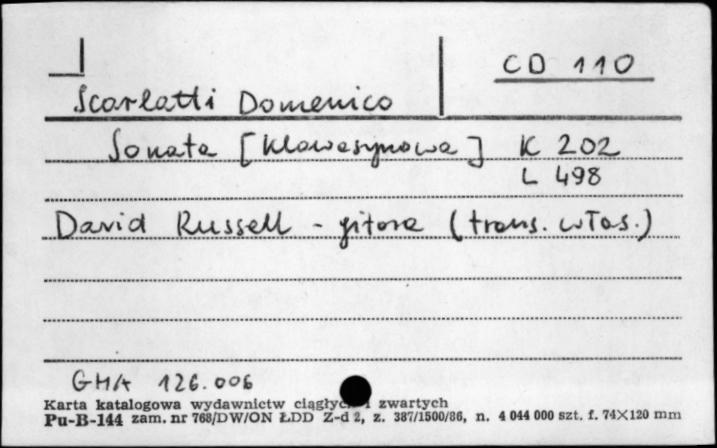 CD 110
Scarlatti Domenico
Sonata [klawesynowa] K 202
L 498
David Russell - gitara (trans. włas.)
GHA 126.006
Karta katalogowa wydawnictw ciągłych i zwartych
Pu-B-144 zam. nr 768/DW/ON ŁDD Z-d 2, z. 387/1500/86, n. 4 044 000 szt. f. 74×120 mm